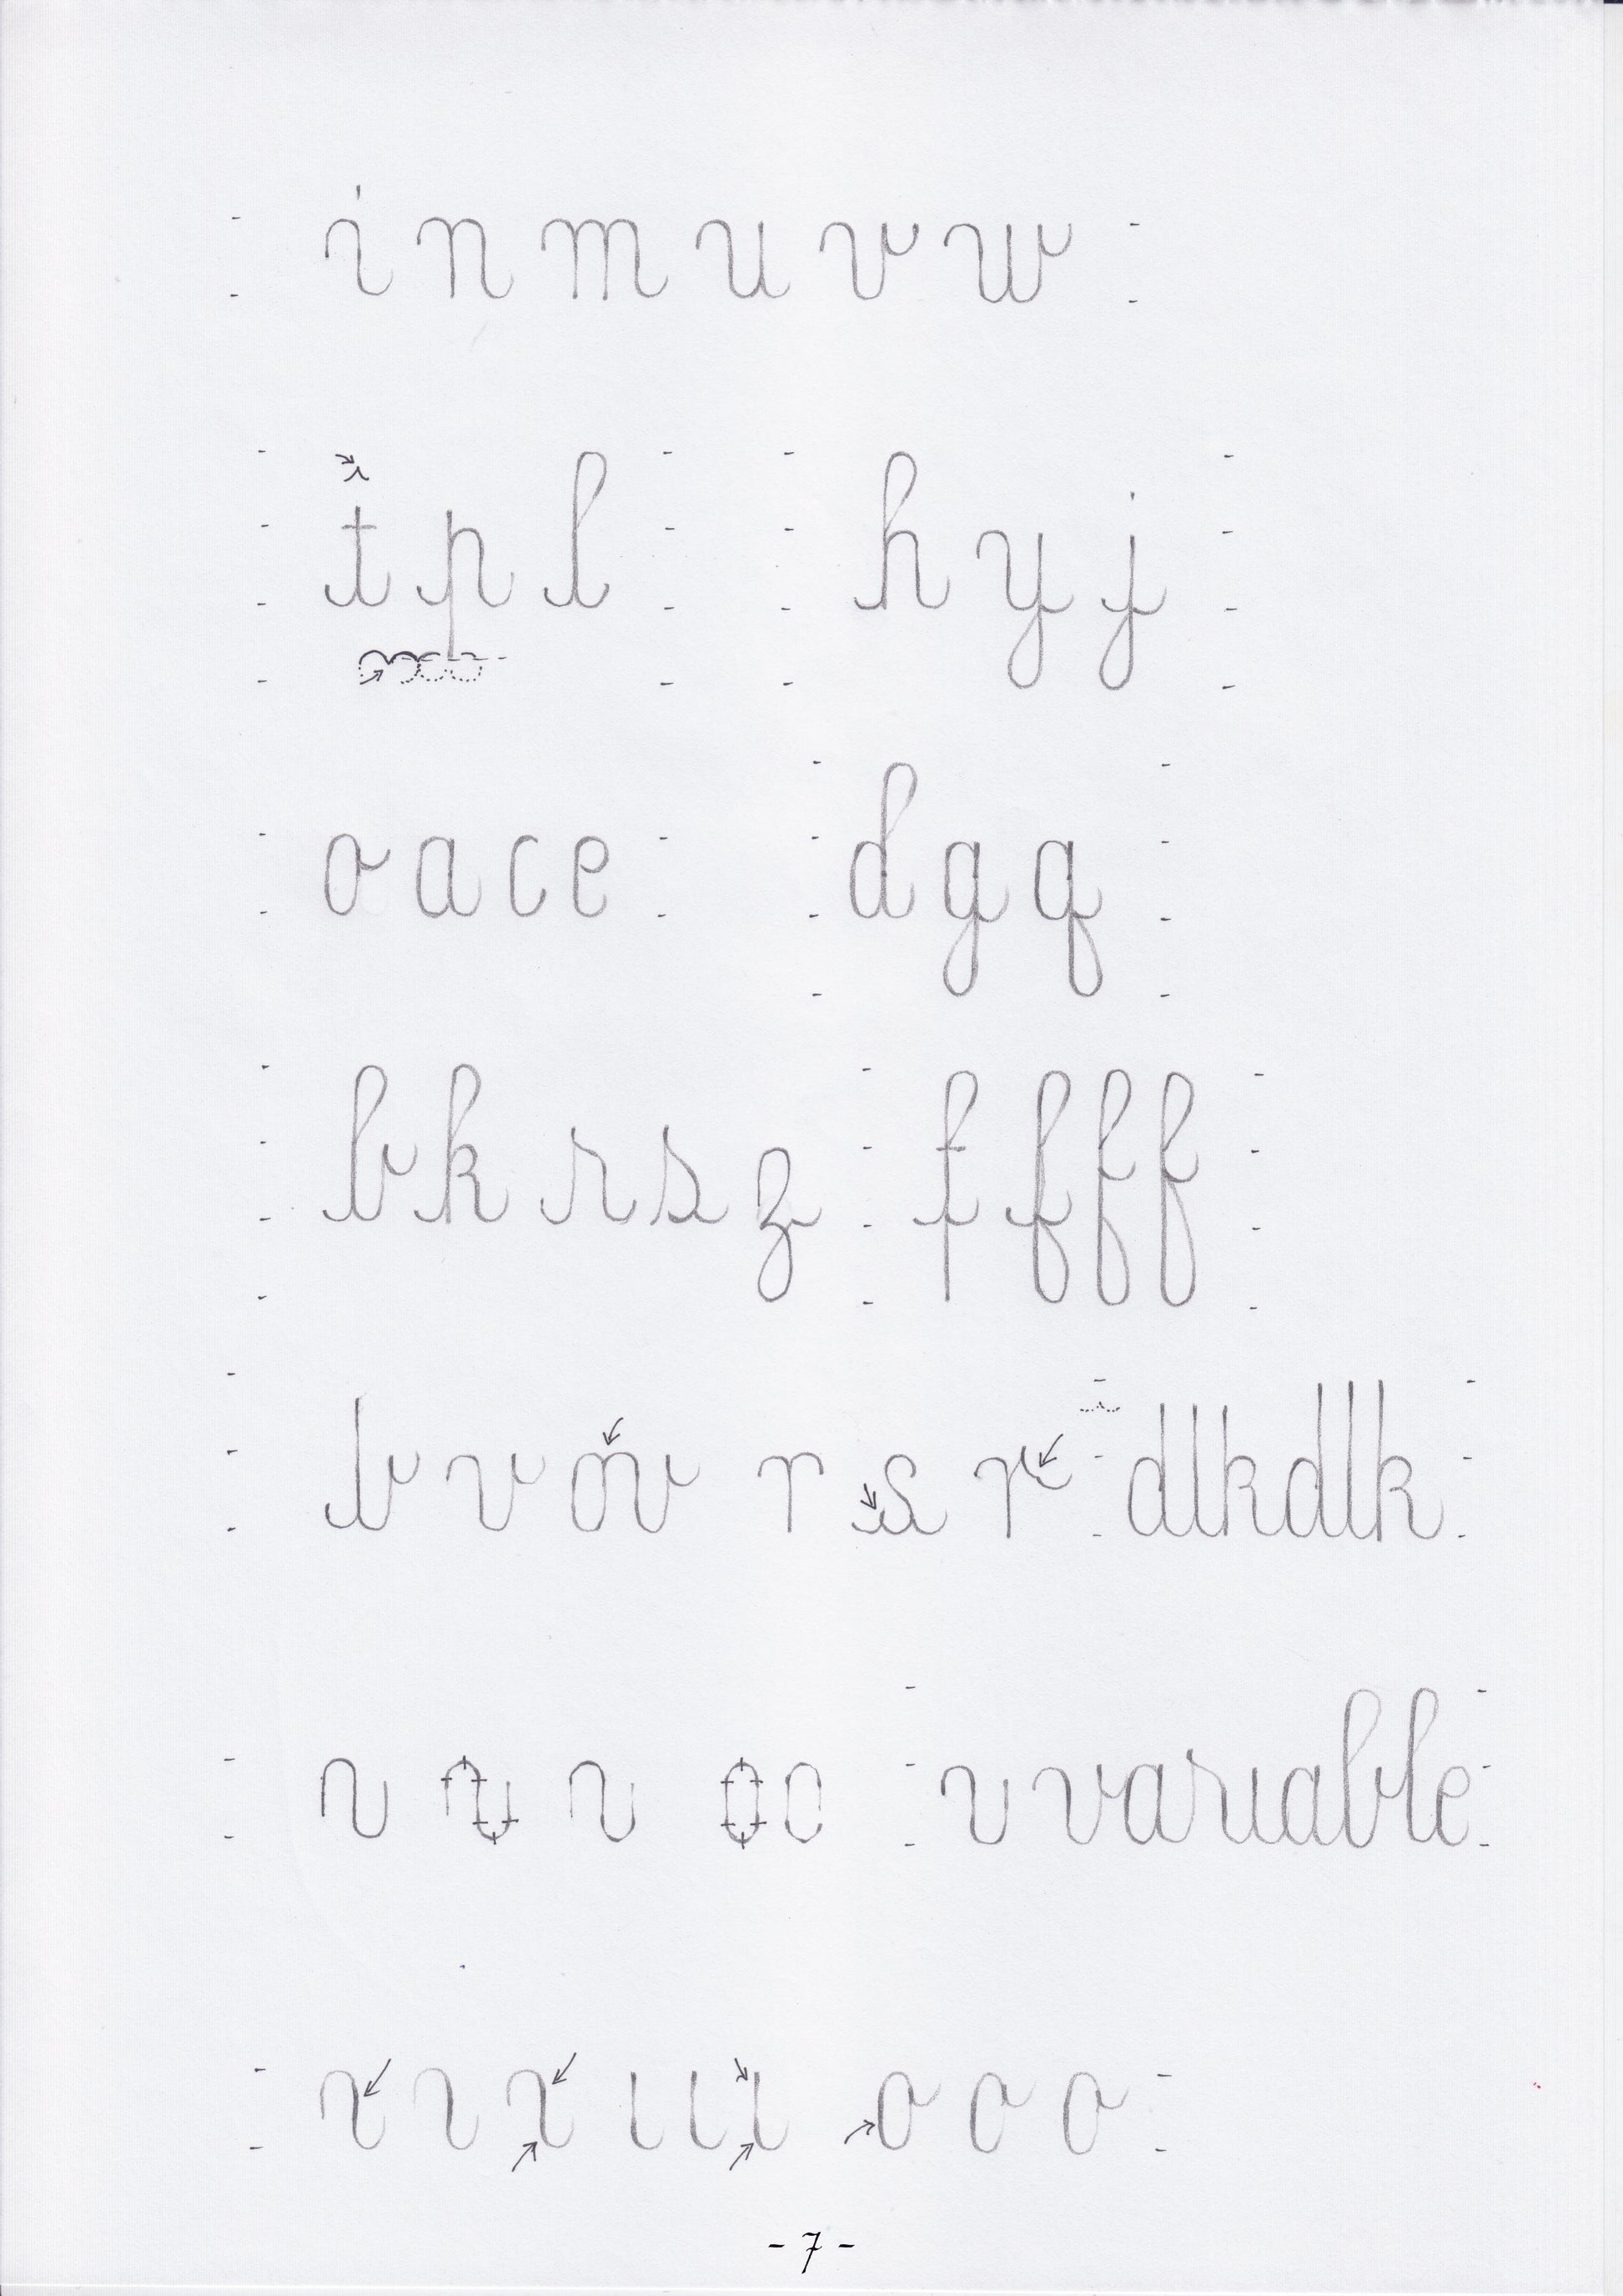 i n m u v w
t p l h y j
o a c e d g q
b k r s z f f f f
b v ov r s r dlkdlk
v variable
ı ı ı ı ı ı o o o
- 7 -